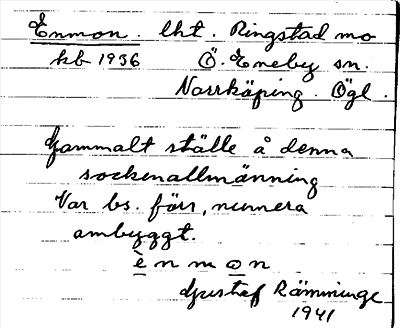 Enmon. lht. Ringstad mo
kb 1936 Ö. Eneby sn.
Norrköping. Ögl.
Gammalt ställe å denna
sockenallmänning
Var bs. förr, numera
ombyggt.
è n m o n
Gustaf Rämminge
1941